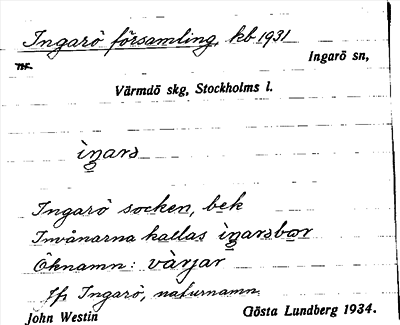 Ingarö församling, kb 1931
Ingarö sn,
Värmdö skg, Stockholms l.
ìŋ̲ars
Ingarö socken, bek
Invånarna kallas ìŋ̲arsbor
Öknamn: vàrjar
Jfr Ingarö, naturnamn.
John Westin Gösta Lundberg 1934.